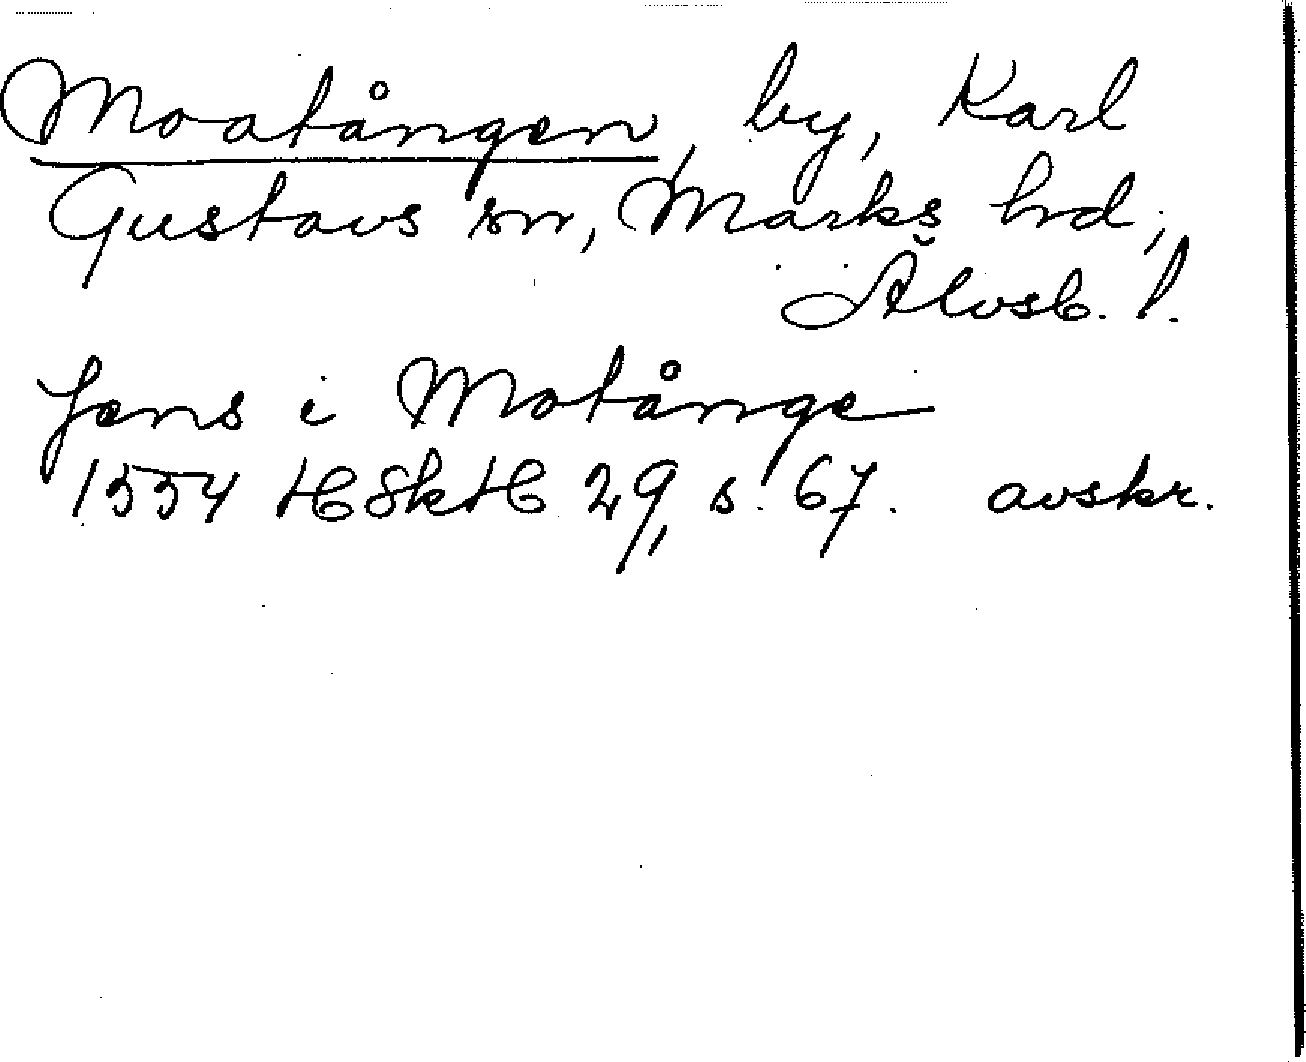 Moatången, by, Karl
Gustavs sn, Marks hd,
Älvsb. l.
Jens i Motånge
1554 HSkH 29, s. 67. avskr.